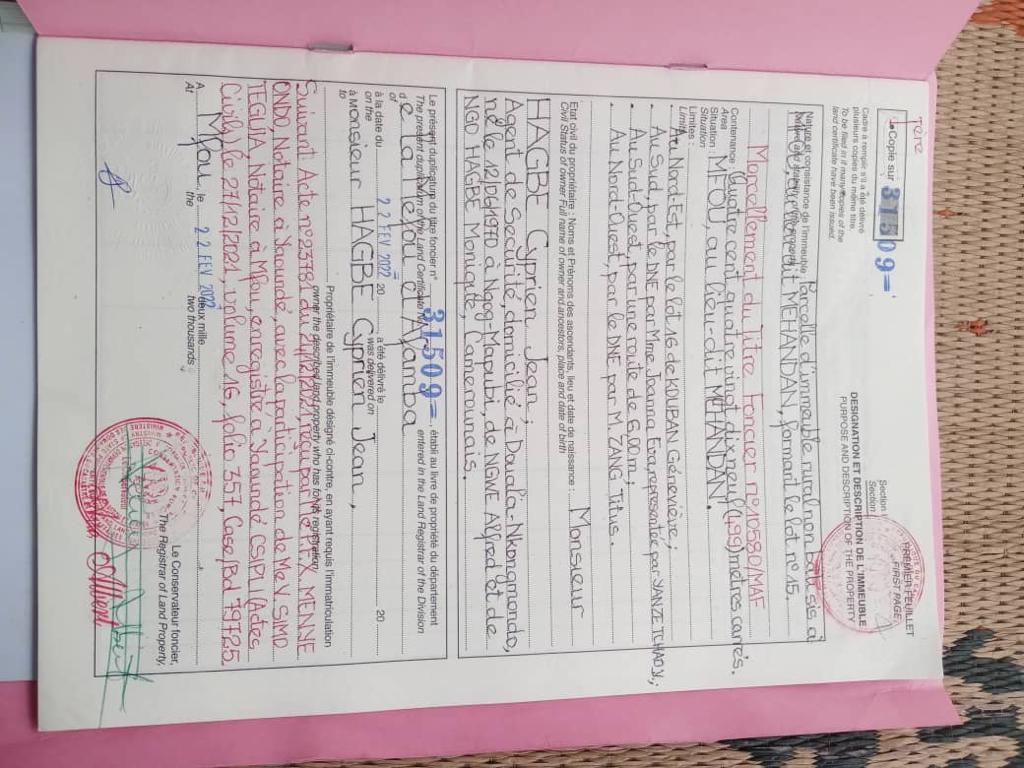 1ère
Copie sur 31509=
Cadre à remplir s'il a été délivré
plusieurs copies du même titre.
To be filed in if many copies of the
land certificate have been issued.
PREMIER FEUILLET
FIRST PAGE
Section I
Section I
DESIGNATION ET DESCRIPTION DE L'IMMEUBLE
PURPOSE AND DESCRIPTION OF THE PROPERTY
Nature et consistance de l'immeuble Parcelle d'immeuble rural non bâti sis à
dit MEHANDAN, formant le lot n°15.
Morcellement du Titre Foncier n°10580/MAF
Contenance Quatre cent quatre vingt dix neuf (499) mètres carrés.
Area
Situation : MFOU, au lieu-dit MEHANDAN.
Situation
Limites :
Limits
. Au Nord Est, par le lot 16 de KOUBAN Géneviève;
. Au Sud, par le DNE par Mme Joanna Eva, représentée par
. Au Sud Ouest, par une route de 6,00m;
. Au Nord Ouest, par le DNE par M. ZANG Titus.
Etat civil du propriétaire : Noms et Prénoms des ascendants, lieu et date de naissance : Monsieur
Civil Status of owner Full name of owner and ancestors, place and date of birth
HAGBE Cyprien Jean;
Agent de Sécurité, domicilié à Douala-Nkongmondo,
né le 12/06/1970 à Ngog-Mapubi, de NGWE Alfred et de
NGO HAGBE Monique, Camerounais.
Le présent duplicatum du titre foncier n° 31509=, établi au livre de propriété du département
The present duplicatum of the Land Certificate N° entered in the Land Registrar of the Division
de la Mefou et Afamba
of
à la date du 22 FEV 2022 20 a été délivré le 20
on the was delivered on
à Monsieur HAGBE Cyprien Jean,
to
Propriétaire de l'immeuble désigné ci-contre, en ayant requis l'immatriculation
owner the described land property who has for its registration
Suivant Acte n°2378 du 24/12/2021, reçu par Me P.F.X. MENYE
ONDO, Notaire à Yaoundé, avec la participation de Me V. SIMO
TEGUIA, Notaire à Mfou, enregistré à Yaoundé CSIPLI (Actes
Civils) le 27/12/2021, Volume 16, folio 357, Case/Bd 7972/5.
A Mfou, le 22 FEV 2022 deux mille
At the two thousands
Le Conservateur foncier,
The Registrar of Land Property,